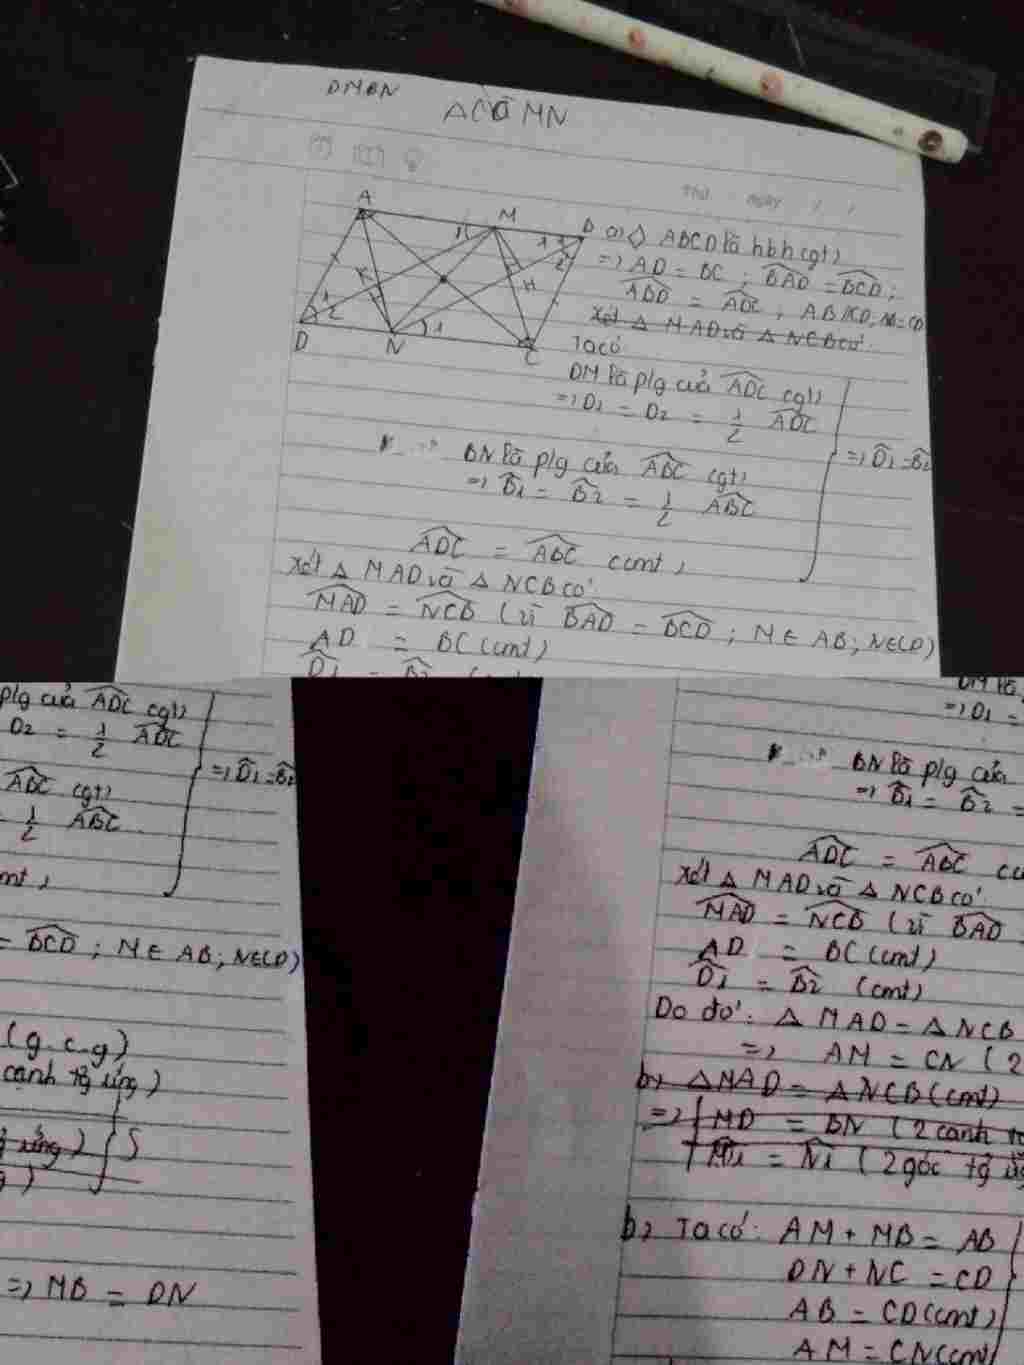 DMBN
ACÔ MN
Thứ ngày / /
A M B
H
D N C
a) ABCD là hbh (gt)
=> AD = BC ; BAD = BCD ;
ABD = ADC ; AB//CD, AB=CD
Xét Δ MAD và Δ NCB có
Ta có
DM là p/g của ADC (gt)
=> D1 = D2 = 1/2 ADC
BN là p/g của ABC (gt)
=> B1 = B2 = 1/2 ABC
=> D1 = B2
ADC = ABC (cmt)
xét Δ MAD và Δ NCB có
MAD = NCB (vì BAD = BCD ; M ∈ AB ; N ∈ CD)
AD = BC (cmt)
D1 = B2
p/g của ADC (gt)
D2 = 1/2 ADC
ABC (gt)
= 1/2 ABC
=> D1 = B2
= BCD ; M ∈ AB ; N ∈ CD)
(g.c.g)
cạnh tg ứng)
ứng)
=> MB = DN
DM là
=> D1 =
BN là p/g của
=> B1 = B2 =
ADC = ABC
xét Δ MAD và Δ NCB có
MAD = NCB (vì BAD
AD = BC (cmt)
D1 = B2 (cmt)
Do đó: Δ MAD = Δ NCB
=> AM = CN (2
b, ΔMAD = ΔNCB (cmt)
=> MD = BN (2 cạnh
M1 = N1 (2 góc tg ứ
b, Ta có: AM + MB = AB
DN + NC = CD
AB = CD (cmt)
AM = CN (cmt)